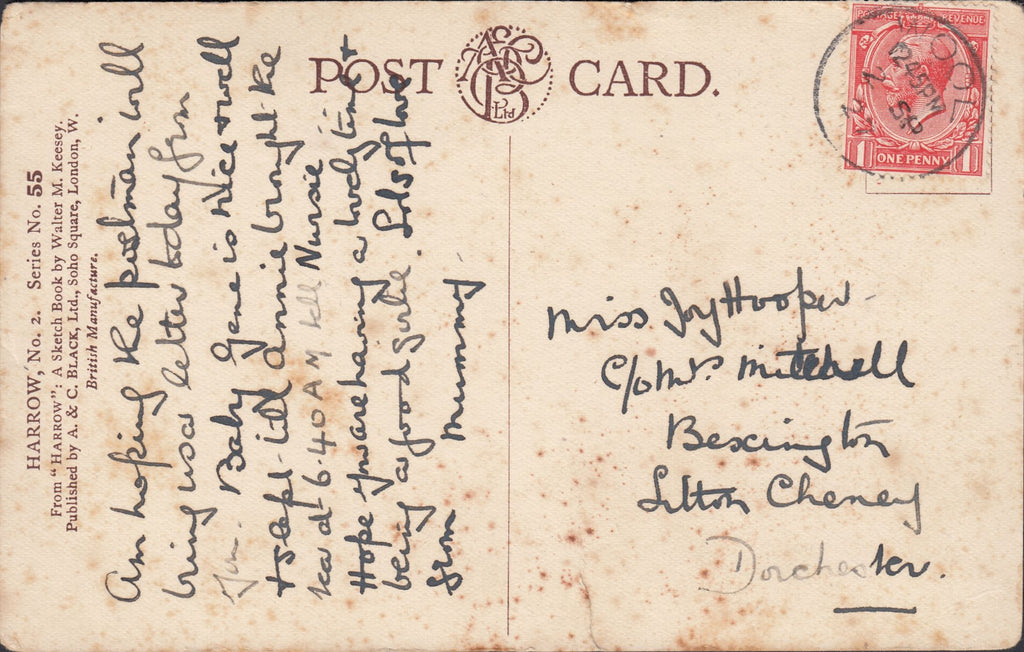 HARROW, No. 2. Series No. 55
From "HARROW": A Sketch Book by Walter M. Keesey.
Published by A. & C. BLACK, Ltd., Soho Square, London, W.
British Manufacture.
POST CARD.
Am hoping the postman will
bring us a letter today from
you. Baby Gene is nice & well
& slept till Annie brought the
tea at 6.40 AM
Nursie
Hope you are having a lovely time &
being a good girlie. Lots of love
from Mummy.
POSTAGE REVENUE
ONE PENNY
1 1
WOOL
1249PM
SP
Miss Joy Hooper
C/o Mrs. Mitchell
Bexington
Litton Cheney
Dorchester.